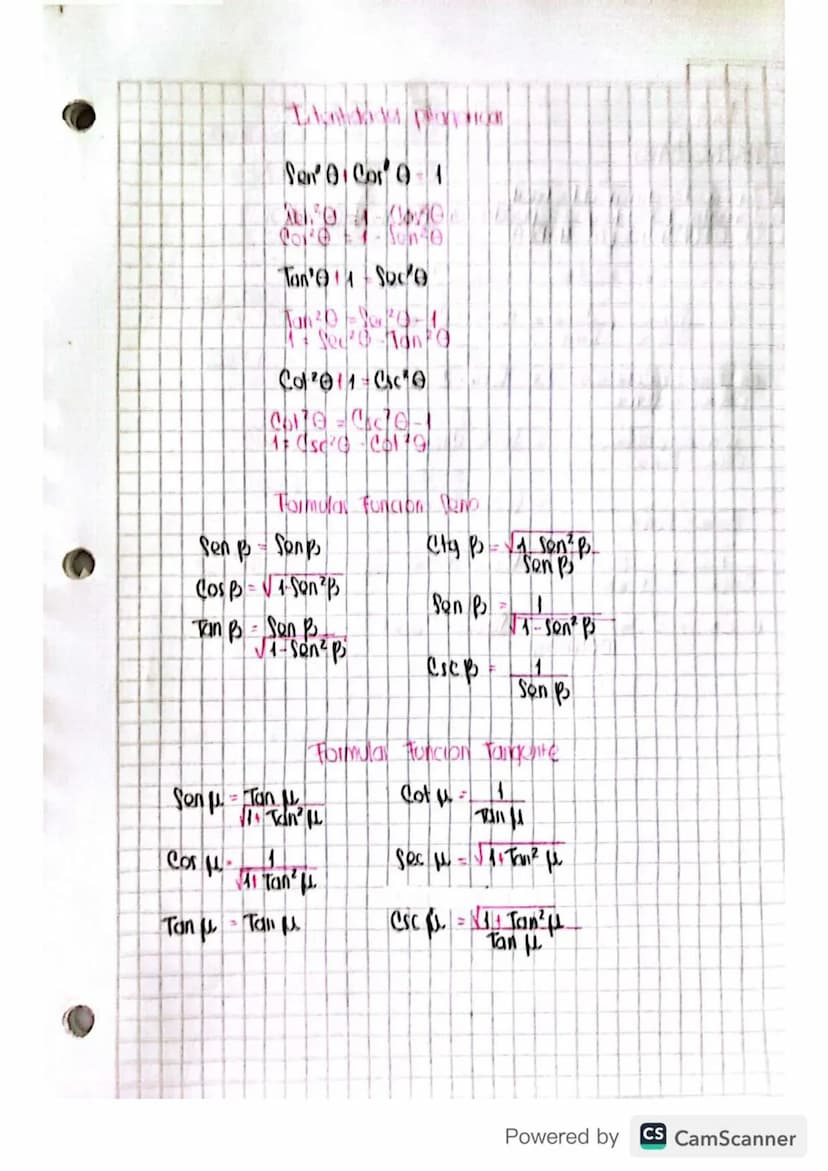 Identidades pitagoricas
Sen²θ + Cos²θ = 1
Sen²θ = 1 - Cos²θ
Cos²θ = 1 - Sen²θ
Tan²θ + 1 = Sec²θ
Tan²θ = Sec²θ - 1
1 = Sec²θ - Tan²θ
Cot²θ + 1 = Csc²θ
Cot²θ = Csc²θ - 1
1 = Csc²θ - Cot²θ
Formulas Funcion Seno
Sen β = Sen β
Cos β = √(1-Sen²β)
Tan β = Sen β / √(1-Sen²β)
Ctg β = √(1 - Sen²β) / Sen β
Sen β = 1 / √(1-Sen²β)
Csc β = 1 / Sen β
Formulas Funcion Tangente
Sen μ = Tan μ / √(1+Tan²μ)
Cos μ = 1 / √(1+Tan²μ)
Tan μ = Tan μ
Cot μ = 1 / Tan μ
Sec μ = √(1+Tan²μ)
Csc μ = √(1+Tan²μ) / Tan μ
Powered by CS CamScanner